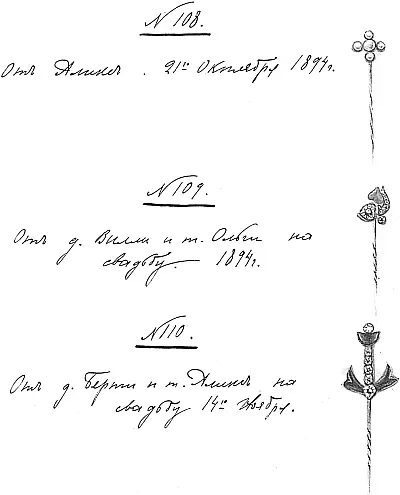 N 108.
Отъ Аликсъ. 21го Октября 1894г.
N 109.
Отъ д. Вилли и т. Ольги на
свадьбу. 1894г.
N 110.
Отъ д. Берти и т. Аликсъ на
свадьбу 14го Ноября.